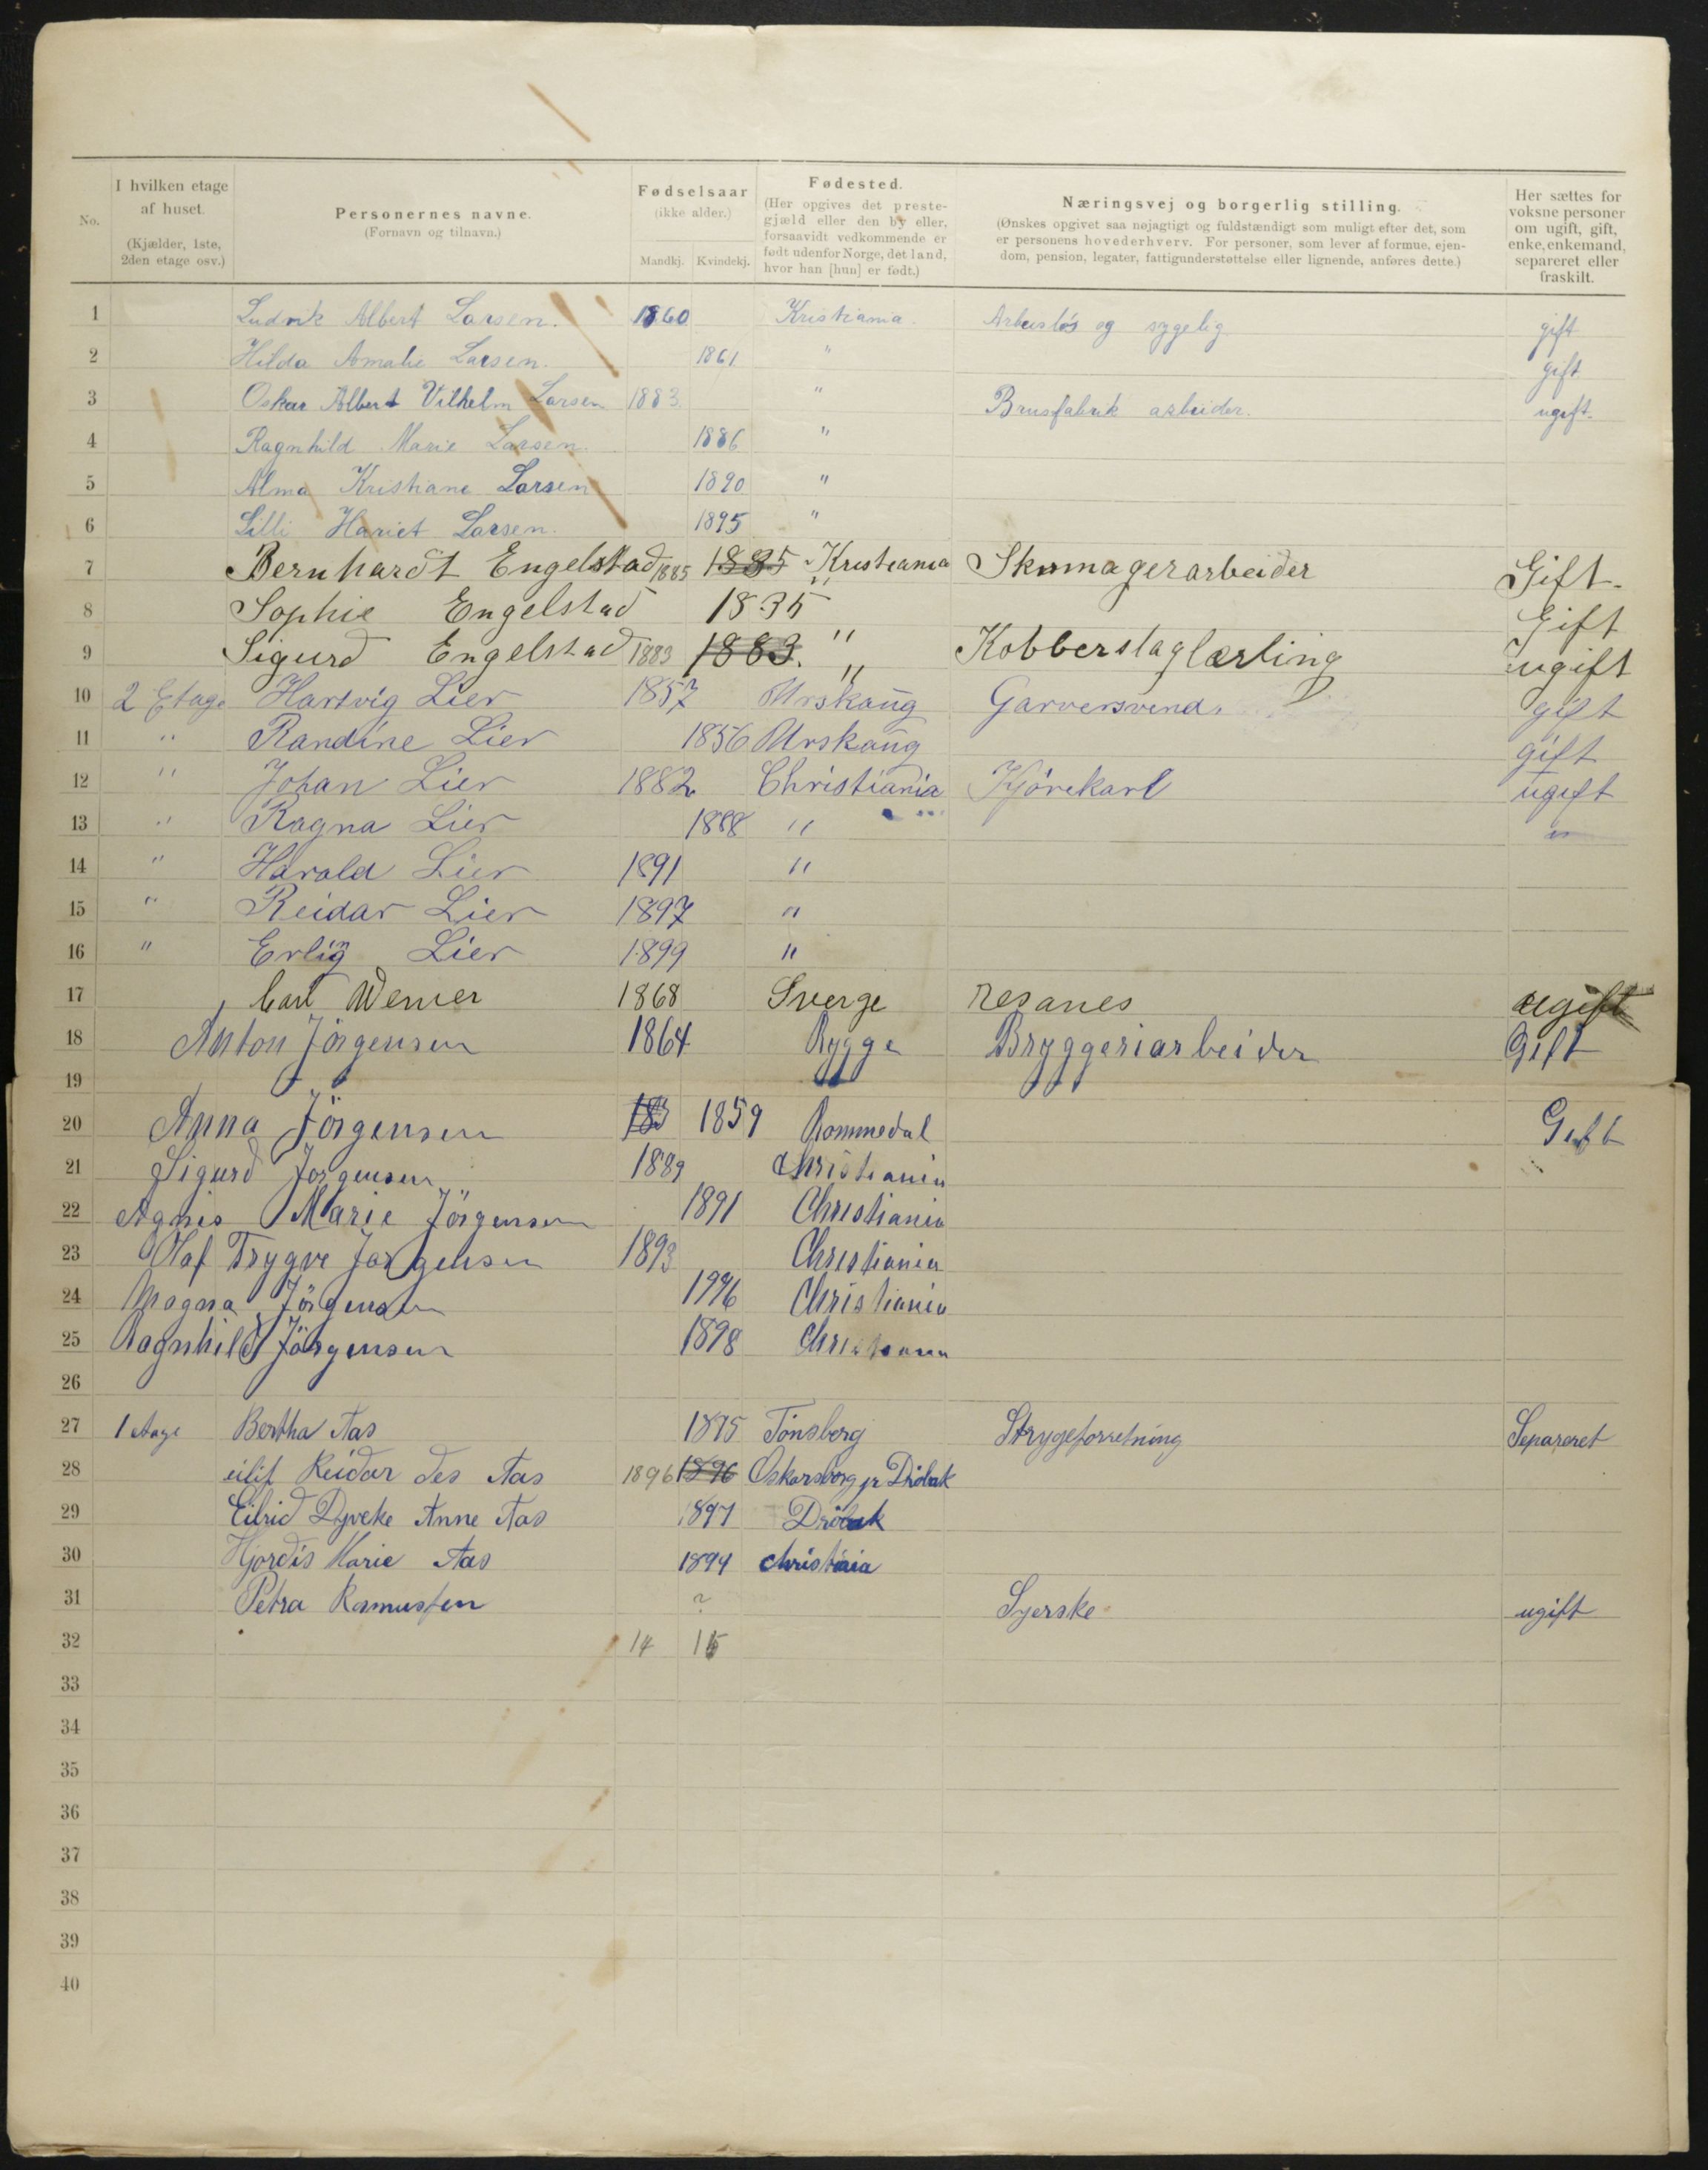 No.
I hvilken etage af huset. (Kjælder, 1ste, 2den etage osv.)
Personernes navne. (Fornavn og tilnavn.)
Fødselsaar (ikke alder.) Mandkj. Kvindekj.
Fødested. (Her opgives det prestegjæld eller den by eller, forsaavidt vedkommende er født udenfor Norge, det land, hvor han [hun] er født.)
Næringsvej og borgerlig stilling. (Ønskes opgivet saa nøjagtigt og fuldstændigt som muligt efter det, som er personens hovederhverv. For personer, som lever af formue, ejendom, pension, legater, fattigunderstøttelse eller lignende, anføres dette.)
Her sættes for voksne personer om ugift, gift, enke, enkemand, separeret eller fraskilt.
1 Ludvik Albert Larsen. 1860 Kristiania. Arbeisløs og sygelig gift
2 Hilda Amalie Larsen. 1861 " gift
3 Oskar Albert Vilhelm Larsen 1883. " Brusfabrik arbeider. ugift.
4 Ragnhild Marie Larsen. 1886 "
5 Alma Kristiane Larsen 1890 "
6 Lilli Hariet Larsen. 1895 "
7 Bernhardt Engelstad 1885 1835 Kristiania Skomagerarbeider Gift.
8 Sophie Engelstad 1835 " Gift
9 Sigurd Engelstad 1883 1883. " Kobberslaglærling ugift
10 2 Etage Hartvig Lier 1857 " Urskoug Garversvend. gift
11 " Randine Lier 1856 Urskoug gift
12 " Johan Lier 1882 Christiania Kjörekarl ugift
13 " Ragna Lier 1888 " "
14 " Harald Lier 1891 "
15 " Reidar Lier 1897 "
16 " Erling Lier 1899 "
17 Carl Werner 1868 Sverge resanes ugift
18 Anton Jörgensen 1864 Rygge Bryggeriarbeider Gift
19
20 Anna Jörgensen 183 1859 Rommedal Gift
21 Sigurd Jorgensen 1889 Christiania
22 Agnis Marie Jörgensen 1891 Christiania
23 Olaf Trygve Jorgensen 1893 Christiania
24 Magna Jörgensen 1996 Christiania
25 Ragnhild Jörgensen 1898 Christiania
26
27 1 Etage Bertha Aas 1875 Tönsberg Strygeforretning Separeret
28 eilif Reidar des Aas 1896 1896 Oskarsborg pr Dröbak
29 Eilrid Dyveke Anne Aas 1897 Dröbak
30 Hjordis Marie Aas 1899 christiaia
31 Petra Rasmussen ? Syerske ugift
32 14 15
33
34
35
36
37
38
39
40